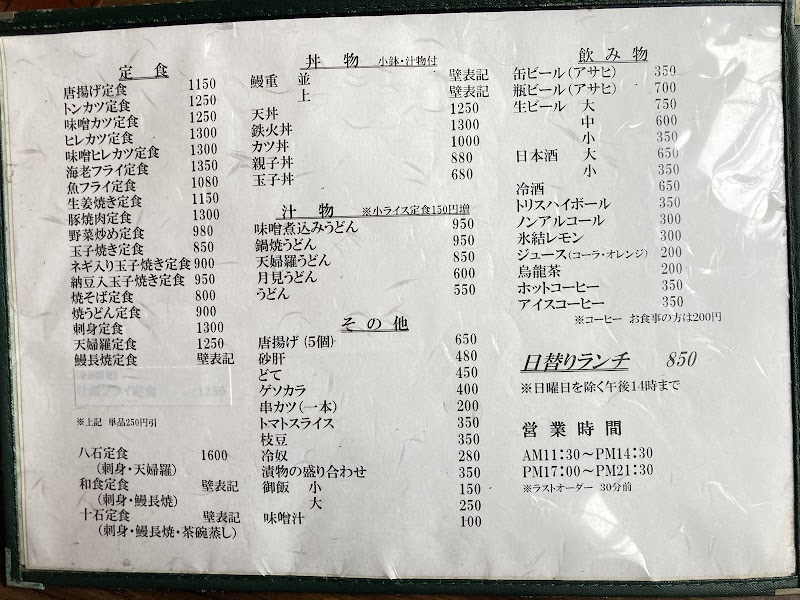 定食
唐揚げ定食 1150
トンカツ定食 1250
味噌カツ定食 1250
ヒレカツ定食 1300
味噌ヒレカツ定食 1300
海老フライ定食 1350
魚フライ定食 1080
生姜焼き定食 1150
豚焼肉定食 1300
野菜炒め定食 980
玉子焼き定食 850
ネギ入り玉子焼き定食 900
納豆入玉子焼き定食 950
焼そば定食 800
焼うどん定食 900
刺身定食 1300
天婦羅定食 1250
鰻長焼定食 壁表記
フライ定食
※上記 単品250円引
八石定食 1600
(刺身・天婦羅)
和食定食 壁表記
(刺身・鰻長焼)
十石定食 壁表記
(刺身・鰻長焼・茶碗蒸し)
丼物 小鉢・汁物付
鰻重 並 壁表記
上 壁表記
天丼 1250
鉄火丼 1300
カツ丼 1000
親子丼 880
玉子丼 680
汁物 ※小ライス定食150円増
味噌煮込みうどん 950
鍋焼うどん 950
天婦羅うどん 850
月見うどん 600
うどん 550
その他
唐揚げ(5個) 650
砂肝 480
どて 450
ゲソカラ 400
串カツ(一本) 200
トマトスライス 350
枝豆 350
冷奴 280
漬物の盛り合わせ 350
御飯 小 150
大 250
味噌汁 100
飲み物
缶ビール(アサヒ) 350
瓶ビール(アサヒ) 700
生ビール 大 750
中 600
小 350
日本酒 大 650
小 350
冷酒 650
トリスハイボール 350
ノンアルコール 300
氷結レモン 300
ジュース(コーラ・オレンジ) 200
烏龍茶 200
ホットコーヒー 350
アイスコーヒー 350
※コーヒー お食事の方は200円
日替りランチ 850
※日曜日を除く午後14時まで
営業時間
AM11:30～PM14:30
PM17:00～PM21:30
※ラストオーダー 30分前